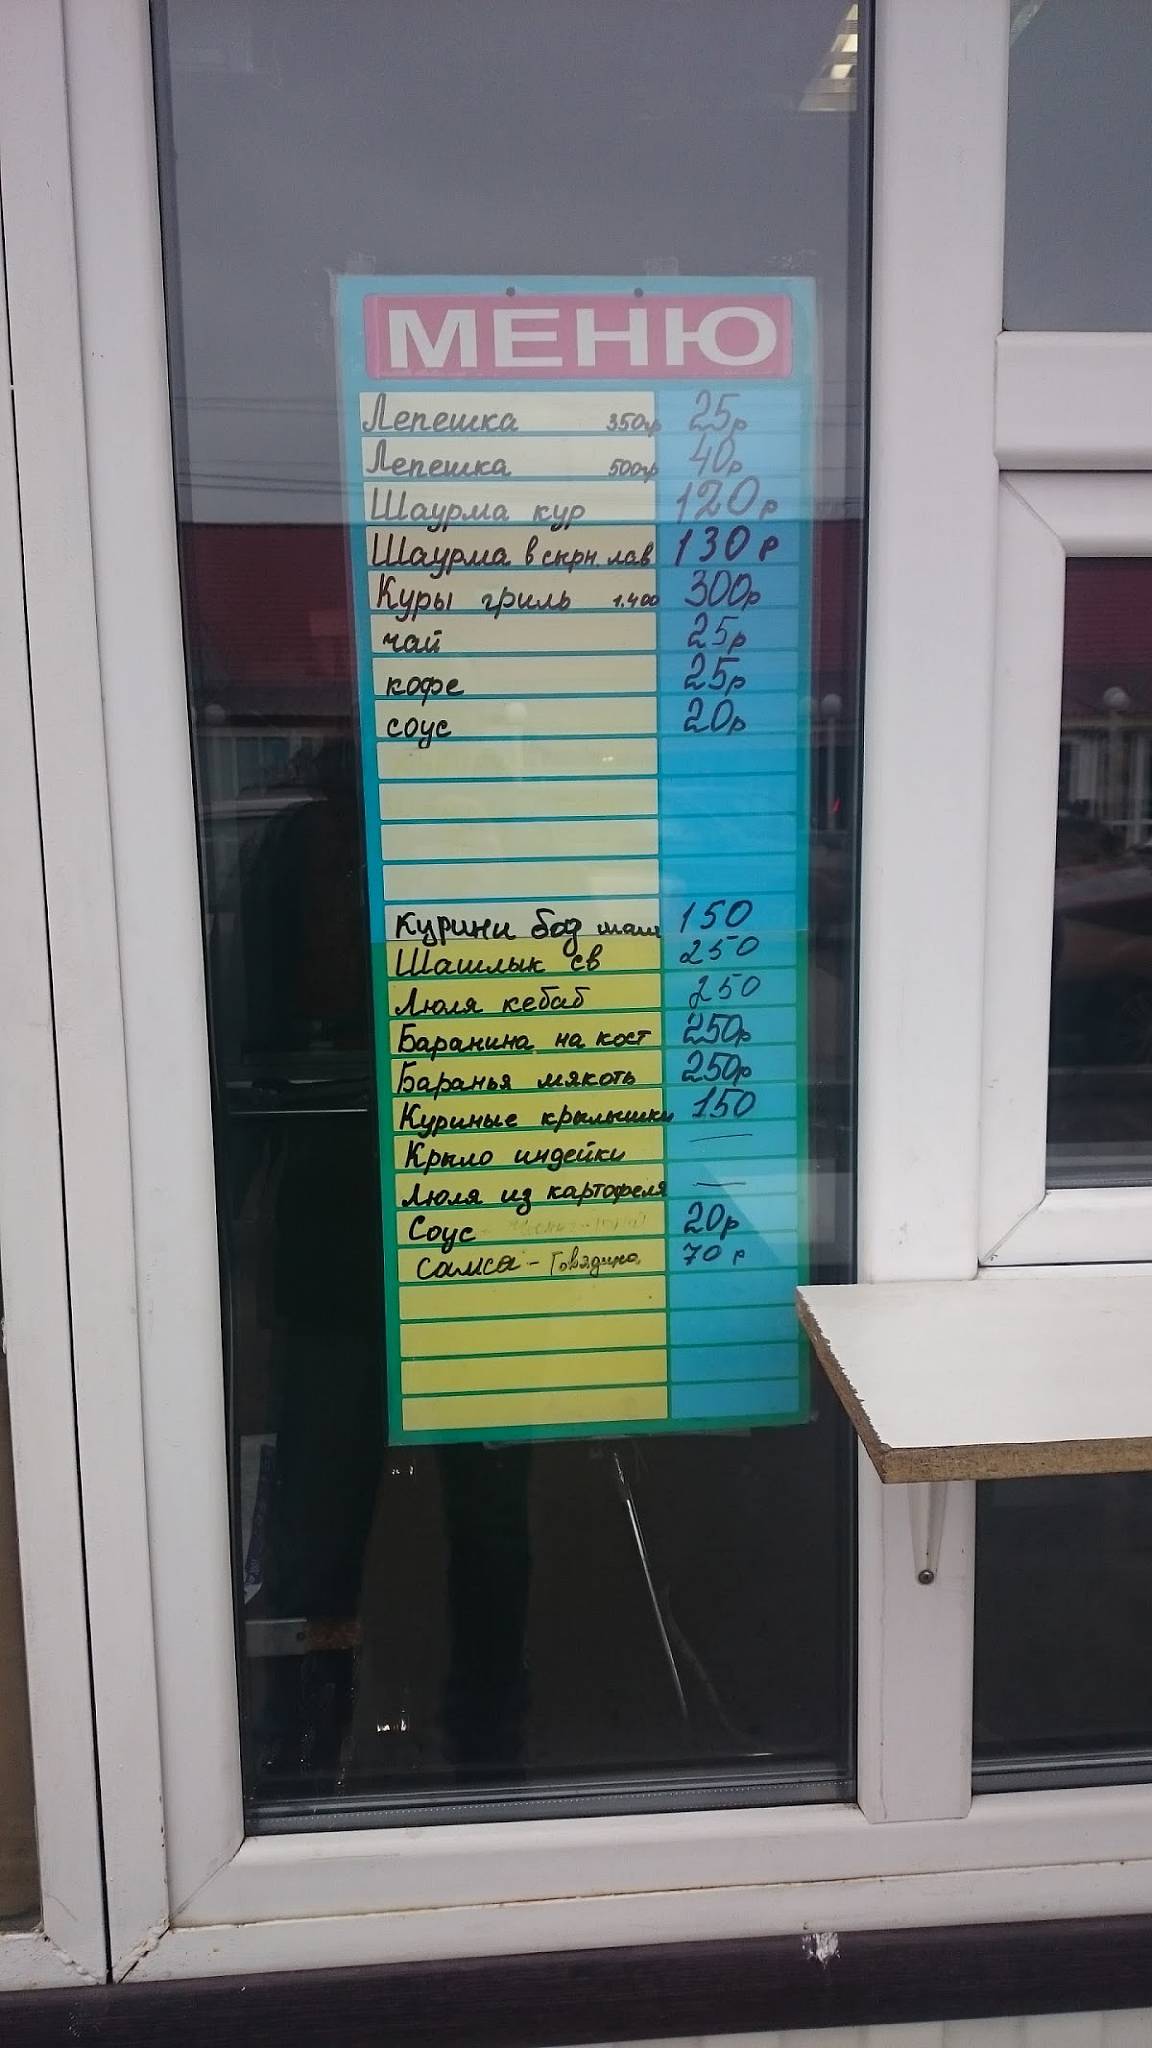 МЕНЮ
Лепешка 350гр 25р
Лепешка 500гр 40р
Шаурма кур 120р
Шаурма в сырн. лав 130р
Куры гриль 1.400 300р
чай 25р
кофе 25р
соус 20р
Курини бод шаш 150
Шашлык св 250
Люля кебаб 250
Баранина на кост 250р
Баранья мякоть 250р
Куриные крылышки 150
Крыло индейки —
Люля из картофеля —
Соус 20р
Самса - Говядина 70р